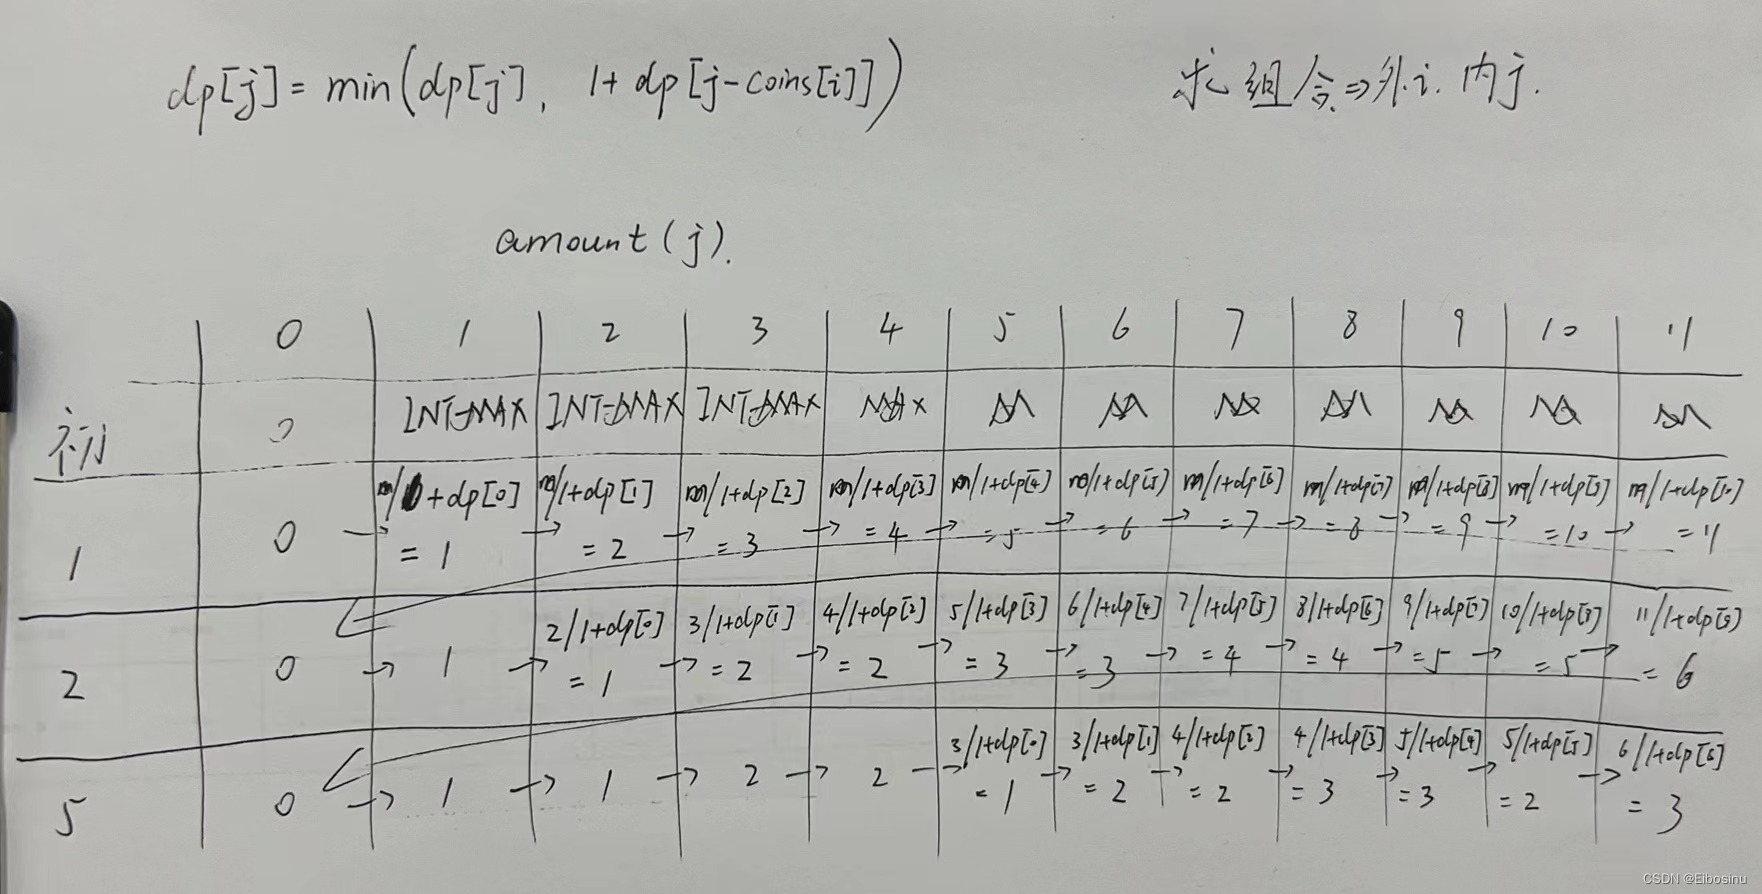 dp[j] = min(dp[j], 1+dp[j-coins[i]])
求组合⇒外i.内j.
amount(j).
0 1 2 3 4 5 6 7 8 9 10 11
初 0 INT-MAX INT-MAX INT-MAX MAX M M M M M M M
m/1+dp[0] m/1+dp[1] m/1+dp[2] m/1+dp[3] m/1+dp[4] m/1+dp[5] m/1+dp[6] m/1+dp[7] m/1+dp[8] m/1+dp[9] m/1+dp[10]
1 0 → =1 → =2 → =3 → =4 → =5 → =6 → =7 → =8 → =9 → =10 → =11
2/1+dp[0] 3/1+dp[1] 4/1+dp[2] 5/1+dp[3] 6/1+dp[4] 7/1+dp[5] 8/1+dp[6] 9/1+dp[7] 10/1+dp[8] 11/1+dp[9]
2 0 → 1 → =1 → =2 → =2 → =3 → =3 → =4 → =4 → =5 → =5 → =6
3/1+dp[0] 3/1+dp[1] 4/1+dp[2] 4/1+dp[3] 5/1+dp[4] 5/1+dp[5] 6/1+dp[6]
5 0 → 1 → 1 → 2 → 2 → =1 → =2 → =2 → =3 → =3 → =2 → =3
CSDN @Eibosinu